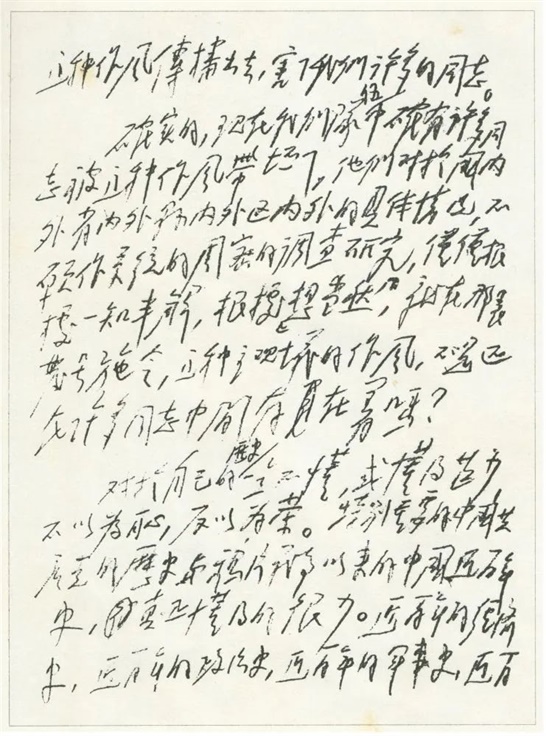 这种作风传播出去，害了我们许多的同志。
确实的，现在我们队伍中确有许多同
志被这种作风带坏了，他们对于国内
外省内外县内外区内外的具体情况，不
愿作系统的周密的调查研究，仅仅根
据一知半解，根据“想当然”，就在那里
发号施令，这种主观主义的作风，不是还
在许多同志中间存在着吗？
对于自己的历史一点不懂，或懂得甚少，
不以为耻，反以为荣。特别重要的是中国共
产党的历史与鸦片战争以来的中国近百年
史，真正懂得的很少。近百年的经济
史，近百年的政治史，近百年的军事史，近百